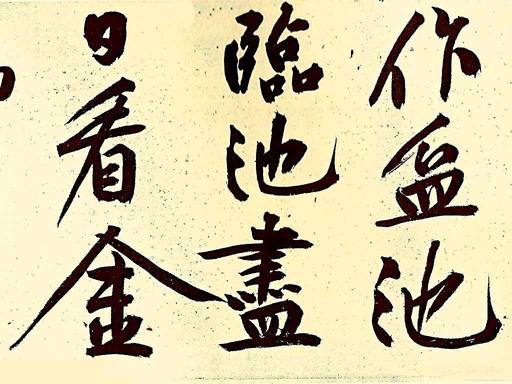 作盆池
臨池盡
日看金